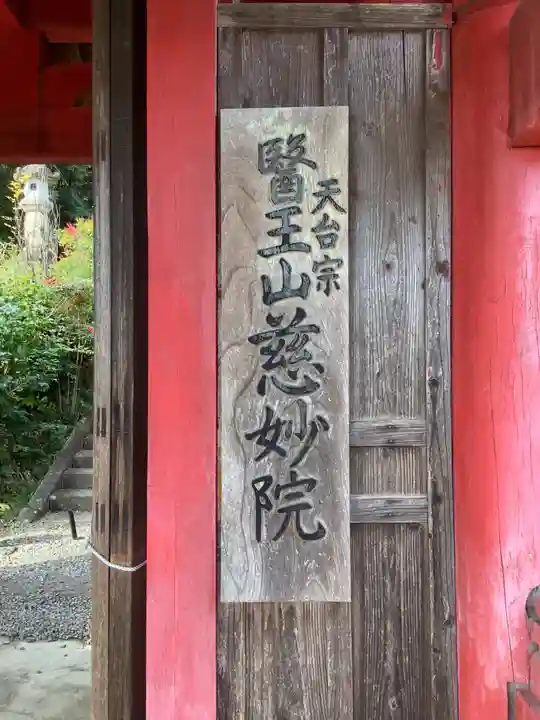 天台宗
醫王山慈妙院